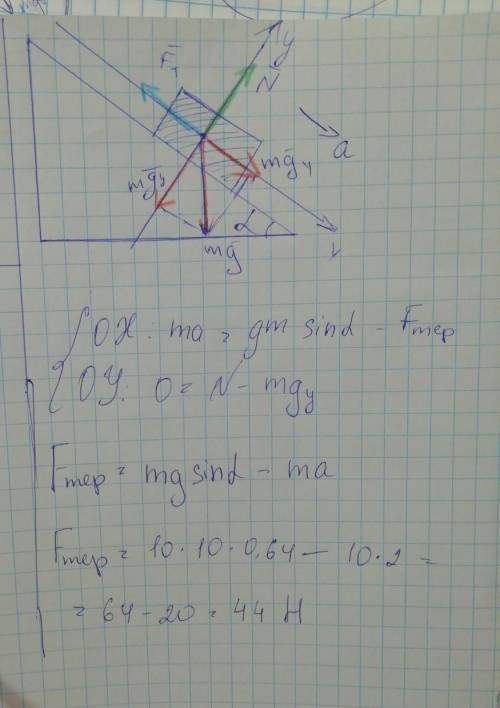 y
F̄т
N̄
a
mḡy
mḡy
α
mḡ
{ OX: ma = gm sinα - Fтер
OY: 0 = N - mgy
Fтер = mg sinα - ma
Fтер = 10·10·0,64 - 10·2 =
= 64 - 20 = 44 Н